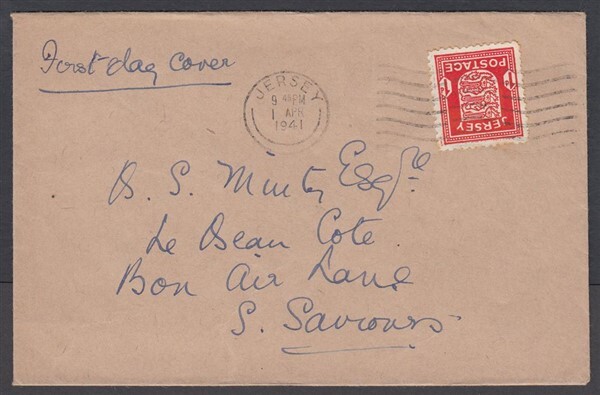 First day cover
JERSEY
9 45 PM
1 APR
1941
POSTAGE
1D 1D
JERSEY
Esqre
Le Beau Cote
Bon Air Lane
S. Saviours